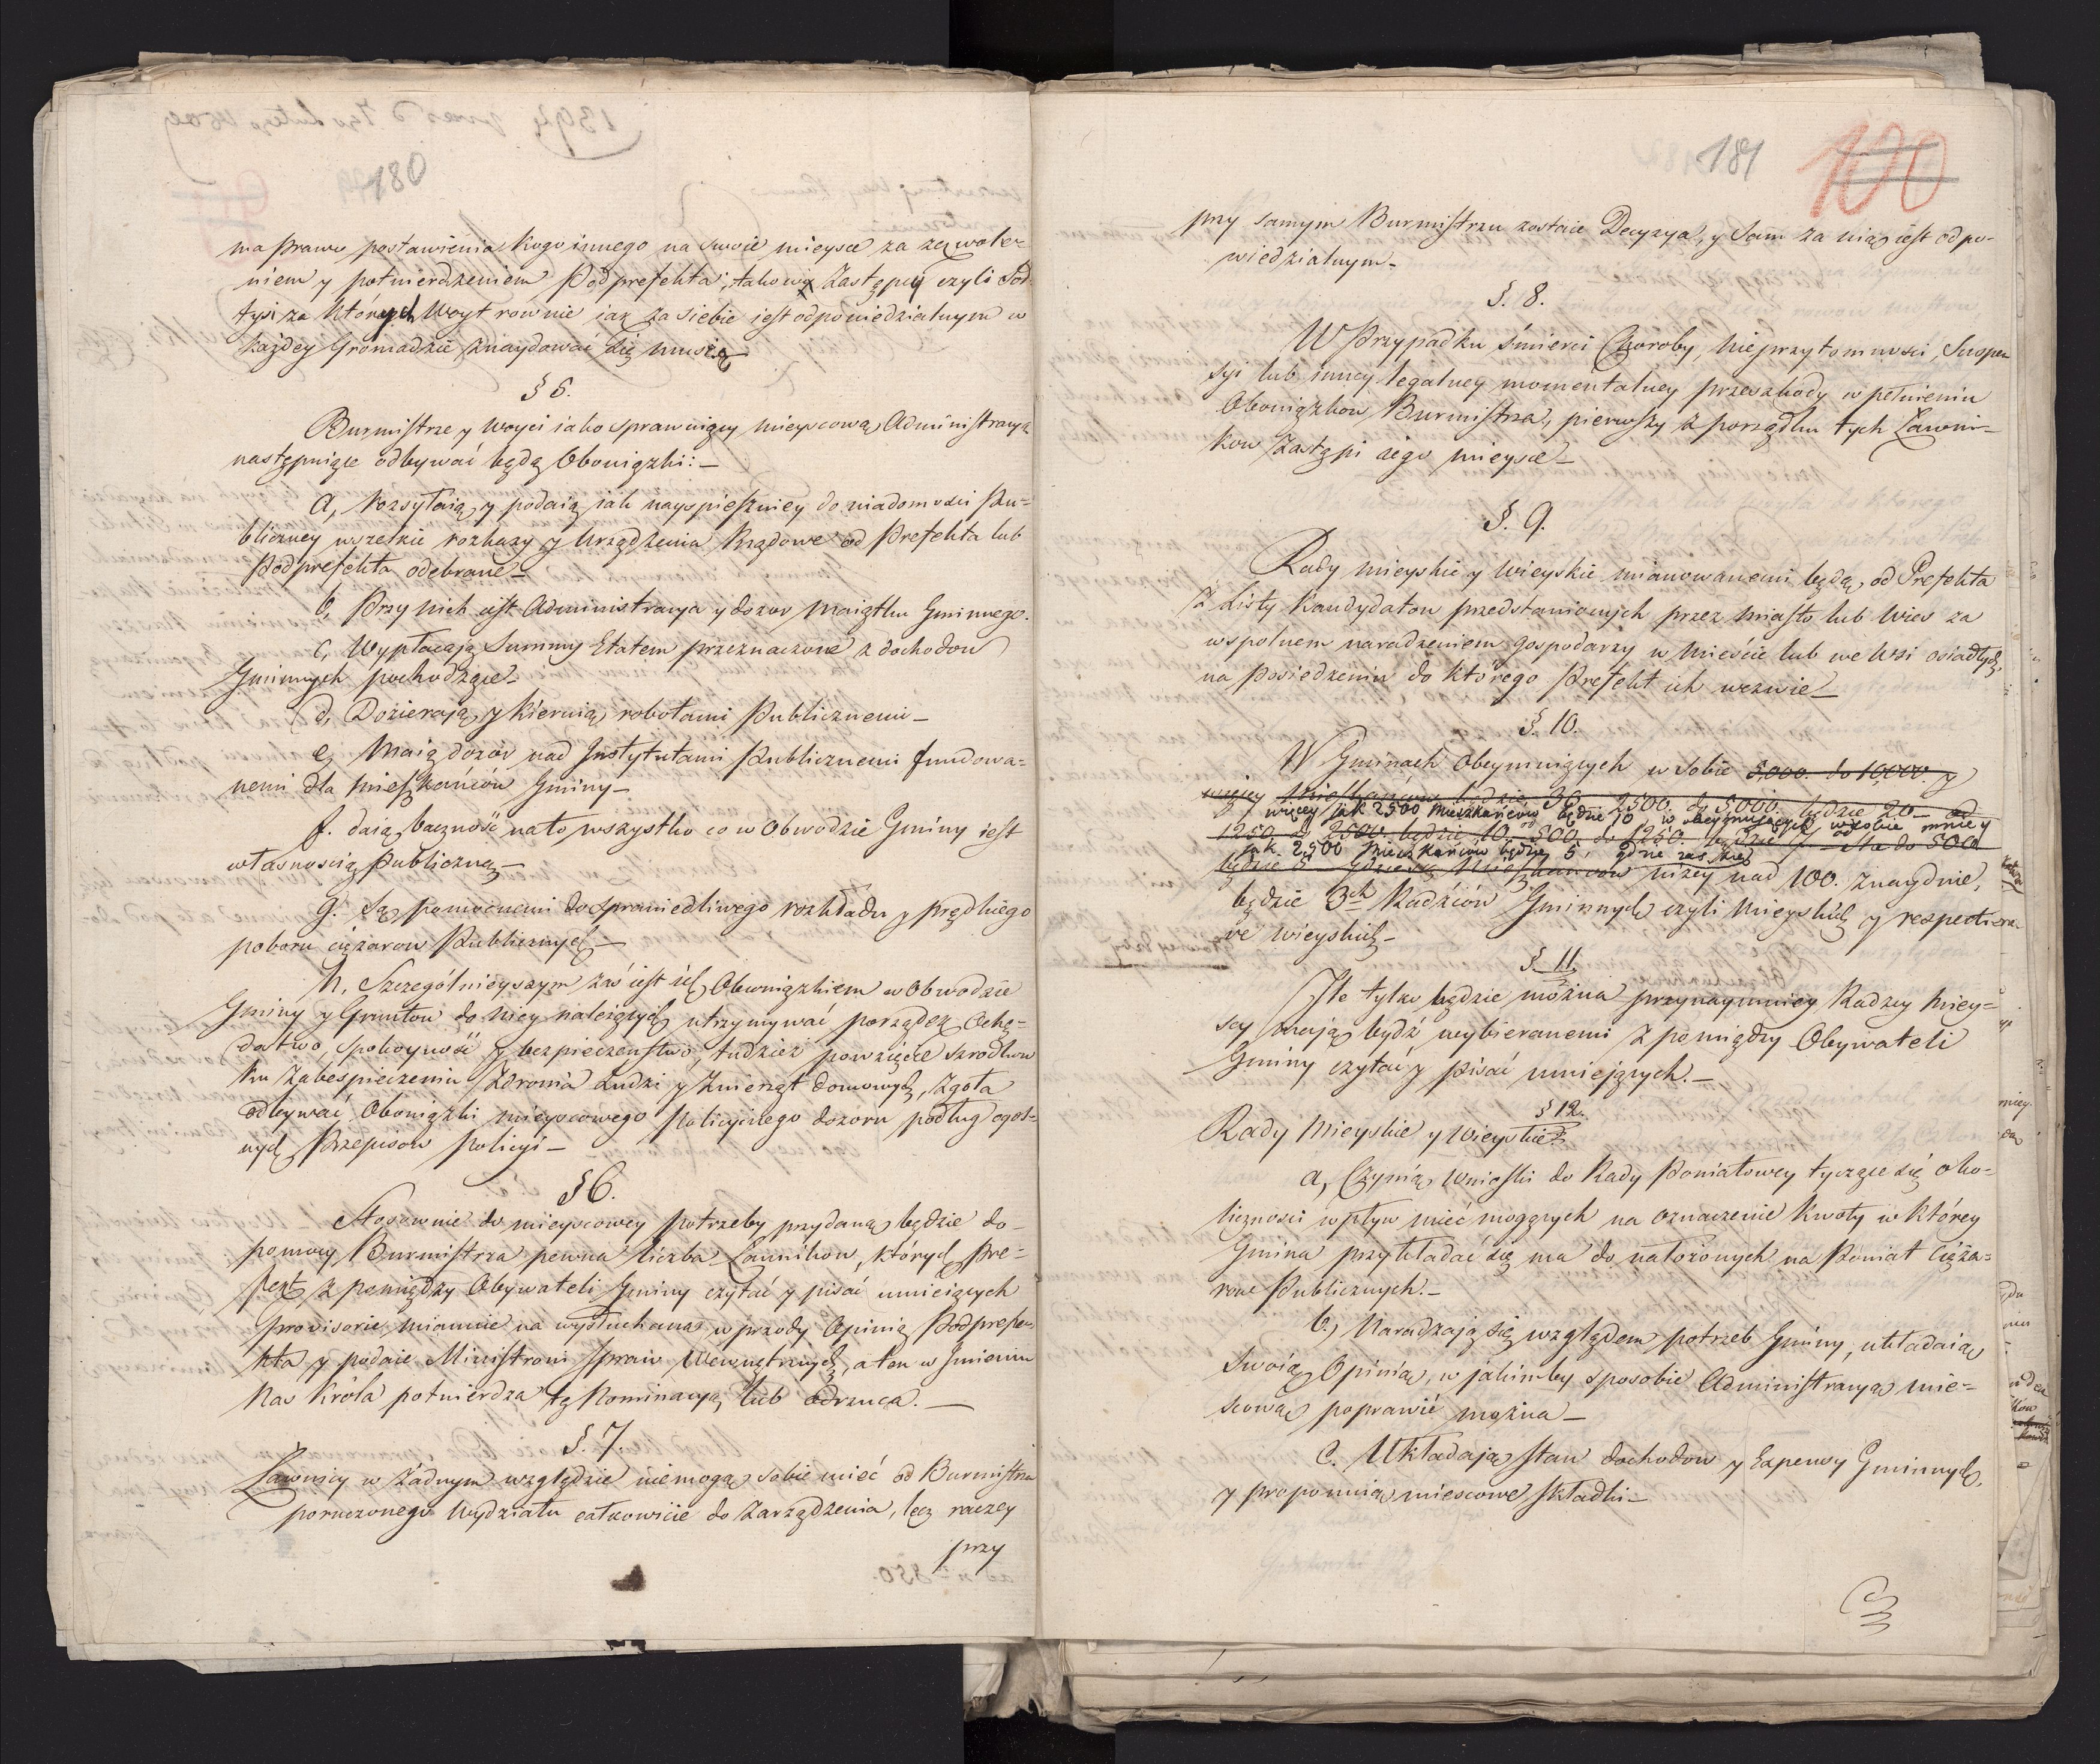 180
ma prawo postawienia kogo innego na swoie mieysce za zezwole-
niem y potwierdzeniem Podprefekta; takowi Zastępcy czyli Soł
tysi za których Woyt rownie iak za siebie iest odpowiedzialnym w
każdey Gromadzie znaydować się muszą
§ 5.
Burmistrze y Woyci iako sprawuiący mieyscową Administracyą
następuiące odbywać będą Obowiązki: –
a, rozsyłaią y podaią iak nayspieszniey do wiadomosci Pu-
bliczney wszelkie rozkazy y Urządzenia Rządowe od Prefekta lub
Podprefekta odebrane –
b, Przy nich iest Administracya y dozor Maiątku Gminnego.
c, Wypłacają Summy Etatem przeznaczone z dochodow
Gminnych pochodzące –
d, Dozierają y kieruią robotami Publicznemi –
e, Maią dozór nad Instytutami Publicznemi fundowa-
nemi dla Mieszkańców Gminy –
f. daią baczność na to wszystko co w Obwodzie Gminy iest
własnością Publiczną –
g. Są pomocnemi do sprawiedliwego rozkładu y prędkiego
poboru ciężarow Publicznych –
h. Szczególnieyszym zaś iest ich Obowiązkiem w Obwodzie
Gminy y Gruntow do niey należących utrzymywać porządek, Ochę-
dostwo, spokoyność y bezpieczenstwo, tudzież powzięcie szrodkow
ku Zabespieczeniu Zdrowia Ludzi y Zwierząt domowych, Zgoła
odbywać Obowiązki mieyscowego Policyinego dozoru podług ogól-
nych Przepisow Policyi –
§ 6.
Stosownie do mieyscowey potrzeby przydaną będzie do
pomocy Burmistrza pewna liczba Ławnikow, których Pre-
fekt z pomiędzy Obywateli Gminy czytać y pisać umieiących
provisorie mianuie na wysłuchaną wprzody Opinią Podprefe-
kta y podaie Ministrowi Spraw Wewnętrznych, a ten w Imieniu
Nas Króla potwierdza tę Nominacyą lub odrzuca. –
§. 7.
Ławnicy w żadnym względzie niemogą sobie mieć od Burmistrza
poruczonego Wydziału całkowicie do Zarządzenia, lecz raczey
przy
181
100
przy samym Burmistrzu zostaie Decyzya, y Sam za nią iest odpo-
wiedzialnym –
§. 8.
W Przypadku śmierci Choroby, Nieprzytomności, Suspen
syi lub inney legalney momentalney przeszkody w pełnieniu
Obowiązkow Burmistrza, pierwszy z porządku tych Ławni-
kow Zastąpi iego mieysce –
§. 9.
Rady mieyskie y Wieyskie mianowanemi będą od Prefekta
z Listy Kandydatow przedstawionych przez Miasto lub Wies za
wspolnem naradzeniem gospodarzy w Mieście lub we Wsi osiadłych,
na Posiedzeniu do którego Prefekt ich wezwie –
§. 10.
W Gminach Obeymuiących w Sobie 5,000. do 10,000. y
więcey Mieszkańcow będzie 30. 2500. do 5000. będzie 20 – od
więcey jak 2500 Mieszkańców będzie 10, w obeymujących w sobie mniey
1250 do 2500. będzie 10 – od 500. do 1250. będzie – od Sta do 500
jak 2,500 Mieszkańców będzie 5, gdzie zaś się
będzie 5 – Gdzie się Mieszkancow niżey nad 100. znaydzie,
będzie 3ch Radźców Gminnych czyli Mieyskich y respective
wieyskich –
§ 11.
Ile tylko będzie można przynaymniey Radzcy Miey-
scy mają bydź wybieranemi z pomiędzy Obywateli
Gminy czytać y pisać umiejących. –
§ 12.
Rady Mieyskie y Wieyskie:
a, Czynią Wnioski do Rady Powiatowey tyczące się oko-
liczności wpływ mieć mogących na oznaczenie Kwoty w którey
Gmina przykładać się ma do nałożonych na Powiat Cięża-
row Publicznych. –
b, Naradzają się względem potrzeb Gminy, układaią
Swoią Opinią, w jakimby sposobie Administracyą mie-
scową poprawić można –
c. Układają stan dochodow y Expensy Gminnych,
y proponuią miescowe składki –